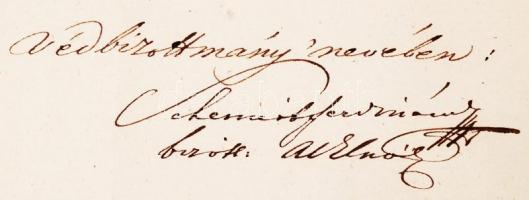 védbizottmány' nevében:
Schmidt Ferdinánd
bizott: alelnök